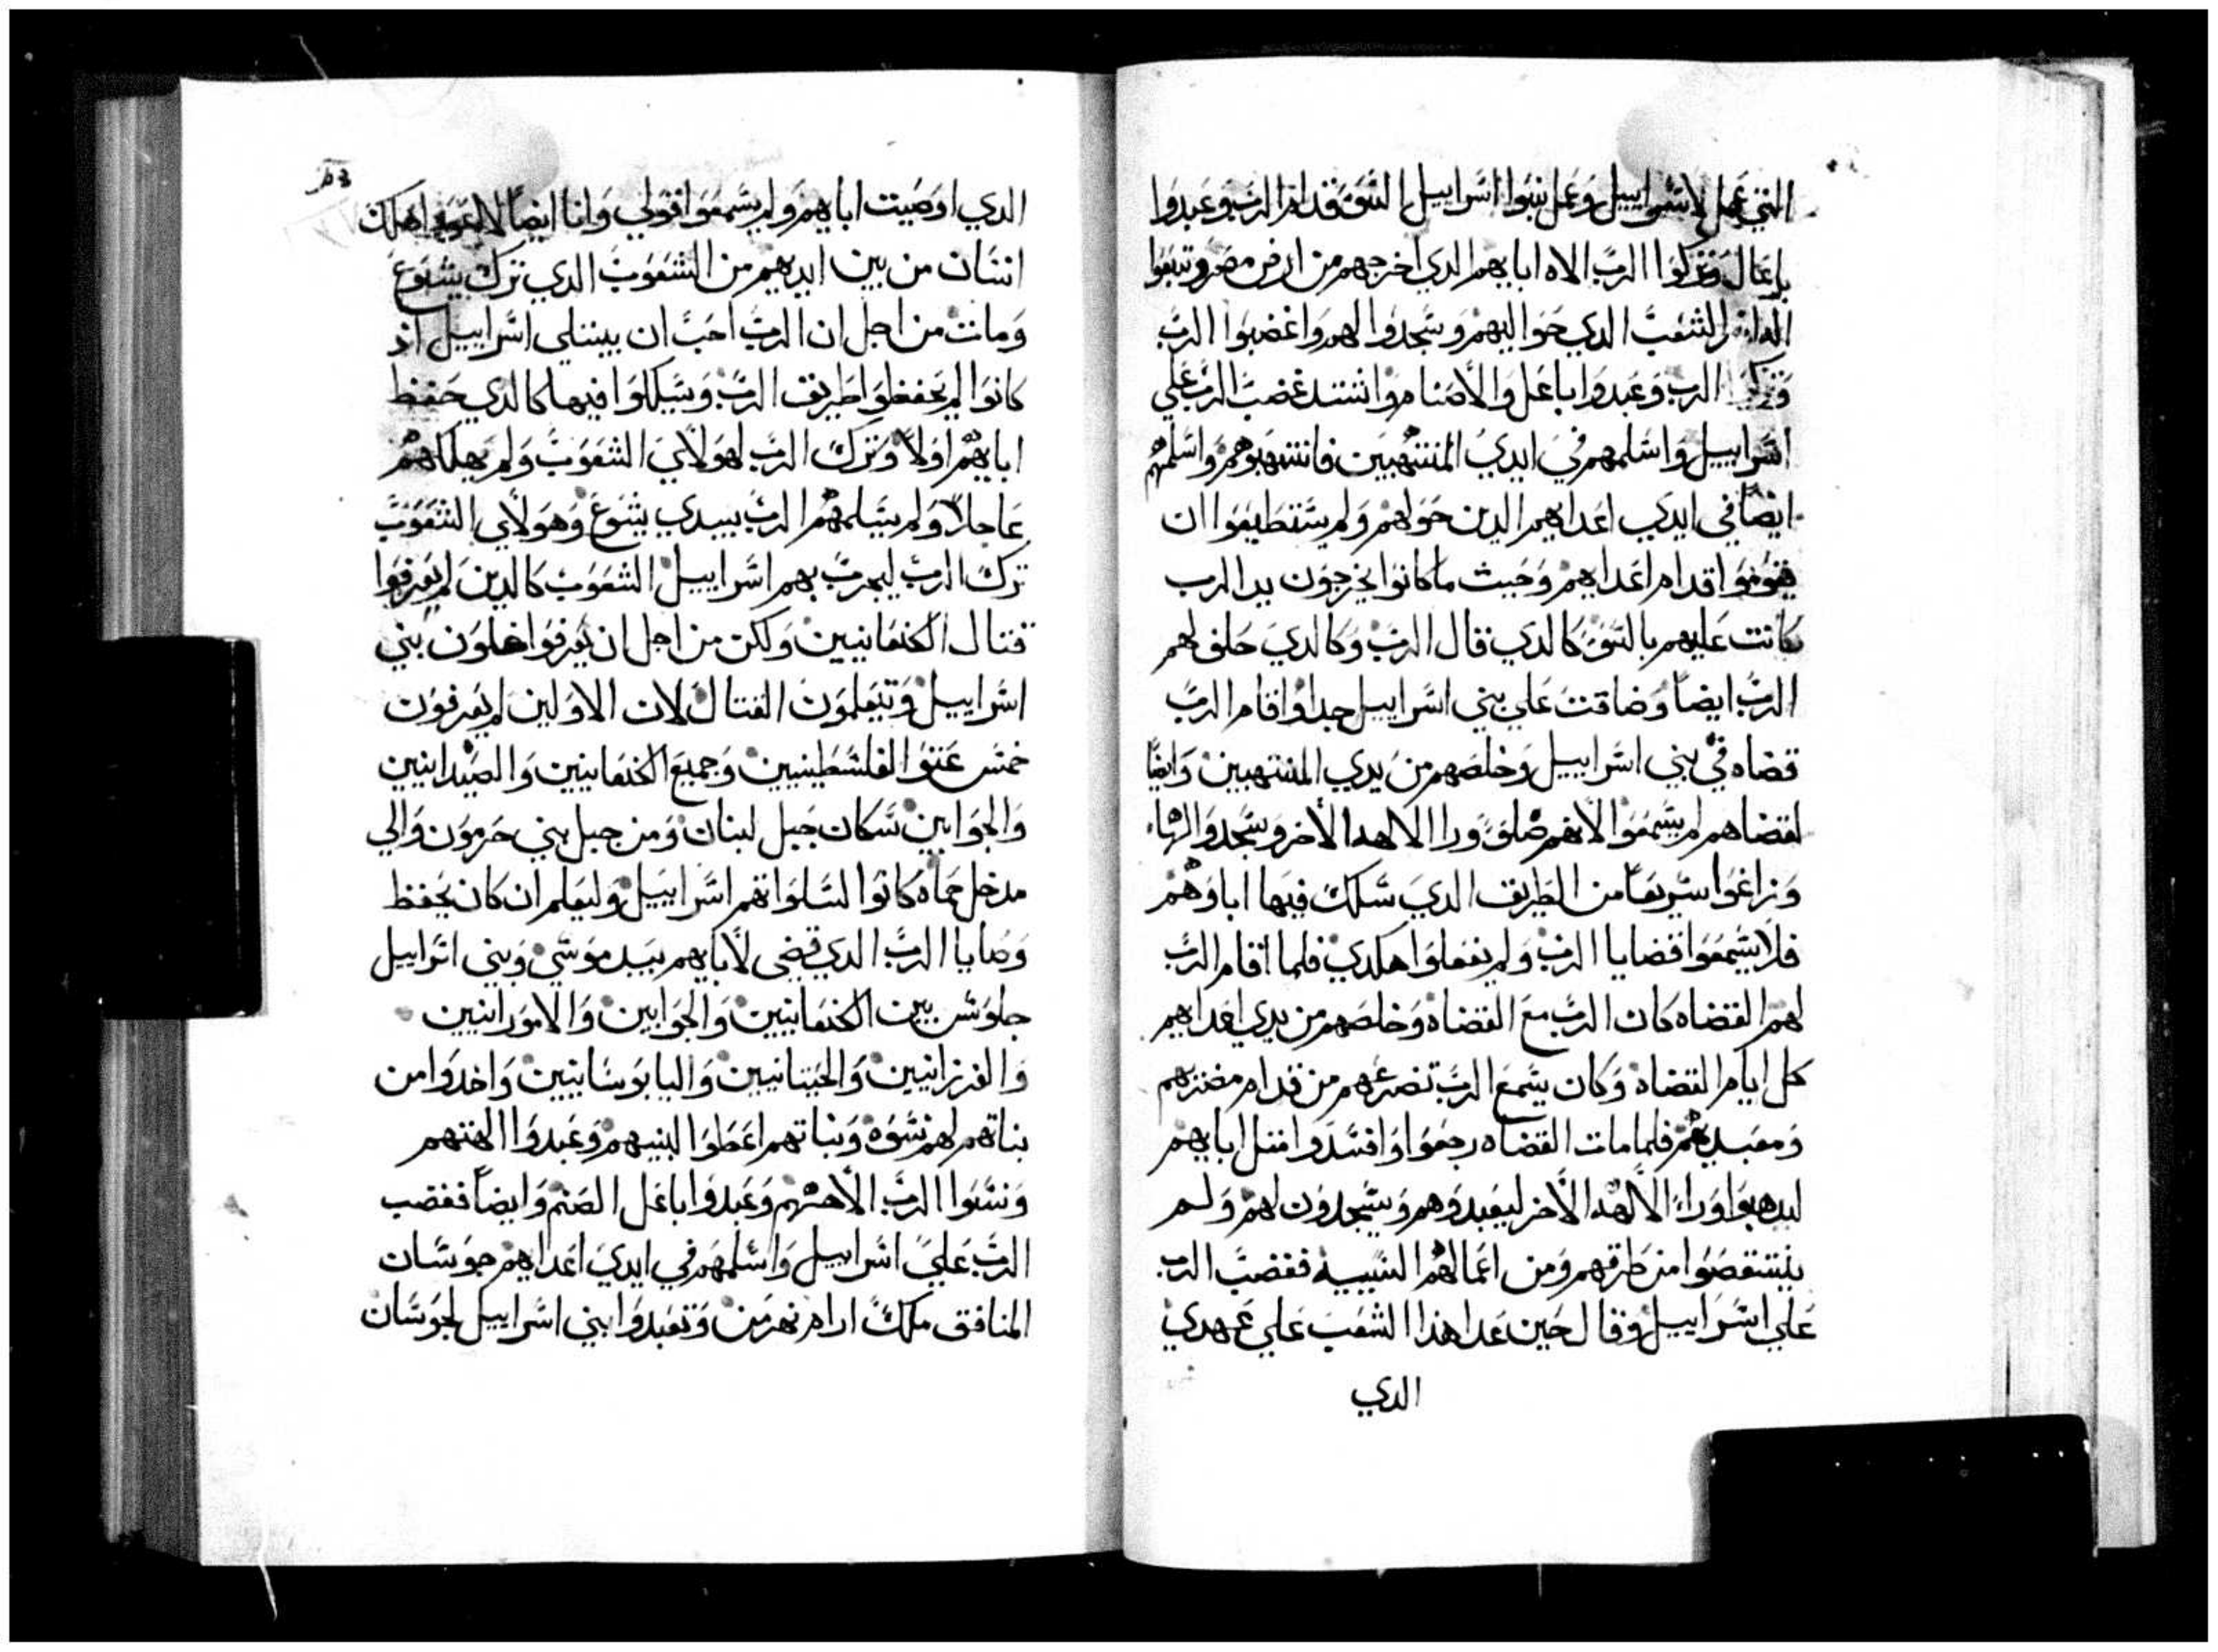 التي عمل لاسراييل وعمل بنوا اسراييل السو قدام الرب وعبدوا
باعال وتركوا الرب الاه اباهم الدي اخرجهم من ارض مصر وتبعوا
الشعب الدي حواليهم وسجدوا لهم واغضبوا الرب
وتركوا الرب وعبدوا باعل والاصنام واشتد غضب الرب علي
اسراييل واسلمهم في ايدي المنتهبين فانتهبوهم واسلمهم
ايضا في ايدي اعداهم الدين حولهم ولم يستطيعوا ان
يقوموا قدام اعداهم وحيث ما كانوا يخرجون يد الرب
كانت عليهم بالسو كالدي قال الرب وكالدي حلف لهم
الرب ايضا وضاقت علي بني اسراييل جدا واقام الرب
قضاه في بني اسراييل وخلصهم من يدي المنتهبين وايضا
لقضاهم لم يسمعوا لانهم ضلو ورا الالهه الاخر وسجدوا لها
وزاغوا سريعا من الطريق الدي سلك فيها اباوهم
فلا يسمعوا قضايا الرب ولم يفعلوا هكدي فلما اقام الرب
لهم القضاه كان الرب مع القضاه وخلصهم من يدي اعداهم
كل ايام القضاه وكان يسمع الرب تضرعهم من قدام مضنزهم
ومعبديهم فلما مات القضاه رجعوا وافسدوا افتل اباهم
ليدهبوا ورا الالهه الاخر ليعبدوهم ويسجدون لهم ولم
ينتقصوا من طرقهم ومن اعمالهم السييه فغضب الرب
علي اسراييل وقال حين عدا هذا الشعب علي عهدي
الدي
الدي اوصيت اباهم ولم يسمعوا قولي وانا ايضا لا اعود اهلك
انسان من بين ايديهم من الشعوب الدي ترك يشوع
ومات من اجل ان الرب احب ان يبتلي اسراييل اد
كانوا لم يحفظوا طريق الرب ويسلكوا فيها كالدي حفظ
اباهم اولا وترك الرب لهولاي الشعوب ولم يهلكهم
عاجلا ولم يسلمهم الرب بيدي يشوع وهولاي الشعوب
ترك الرب ليجرب بهم اسراييل الشعوب كالدين لم يعرفوا
قتال الكنعانيين ولكن من اجل ان يعرفوا خلون بني
اسراييل ويتعلمون القتال لان الاولين لم يعرفون
خمس عتو الفلسطينيين وجميع الكنعانيين والصيدانيين
والجوايين سكان جبل لبنان ومن جبل بني حرمون والي
مدخل حماه كانوا لتبلوا بهم اسراييل وليعلم ان كان يحفظ
وصايا الرب الدي قضي لاباهم بيد موسي وبني اسراييل
جلوس بين الكنعانيين والجوايين والامورانيين
والفرزانيين والحيتانيين واليابوسانيين واخدوا من
بناتهم لهم نسوه وبناتهم اعطوا لبنيهم وعبدوا الهتهم
ونسوا الرب الاههم وعبدوا باعل الصنم وايضا فغضب
الرب علي اسراييل واسلمهم في ايدي اعداهم جوسان
المنافق ملك ارام نهرمن وتعبدوا بني اسراييل لجوسان